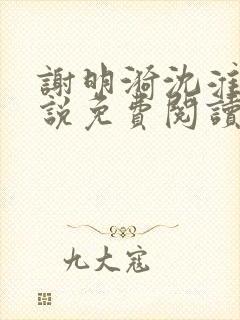 謝明漪沈淮
說免費閱讀
九大寇